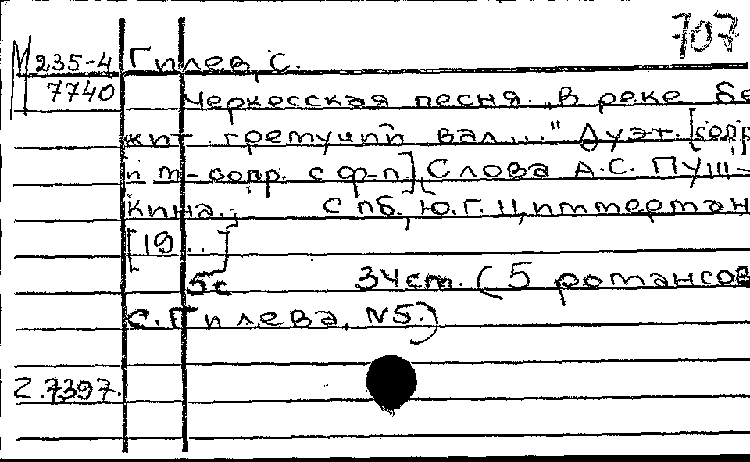 707
М 235-4 Гилев, С.
7740 Черкесская песня. "В реке бе
жит гремучий вал..." Дуэт. [сопр
и м-сопр. с ф-п.] [Слова А.С. Пуш-
кина.] Спб., Ю.Г. Циммерман
[19..]
5с 34см. (5 романсов
С. Гилева, №5.)
2.7397.